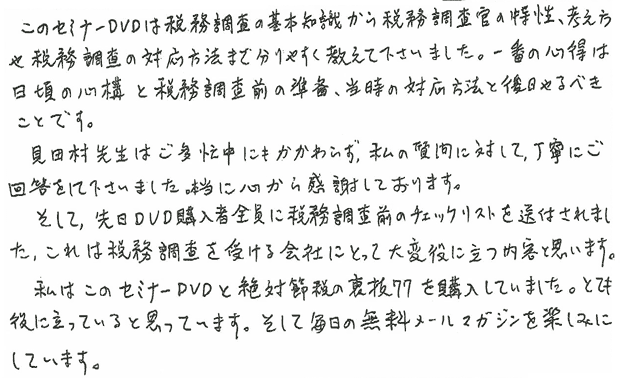 このセミナーDVDは税務調査の基本知識から税務調査官の特性、考え方
や税務調査の対応方法まで分りやすく教えて下さいました。一番の心得は
日頃の心構と税務調査前の準備、当時の対応方法と後日やるべき
ことです。
見田村先生はご多忙中にもかかわらず、私の質問に対して、丁寧にご
回答をして下さいました。本当に心から感謝しております。
そして、先日DVD購入者全員に税務調査前のチェックリストを送付されまし
た、これは税務調査を受ける会社にとって大変役に立つ内容と思います。
私はこのセミナーDVDと絶対節税の裏技77を購入していました。とても
役に立っていると思っています。そして毎日の無料メールマガジンを楽しみに
しています。